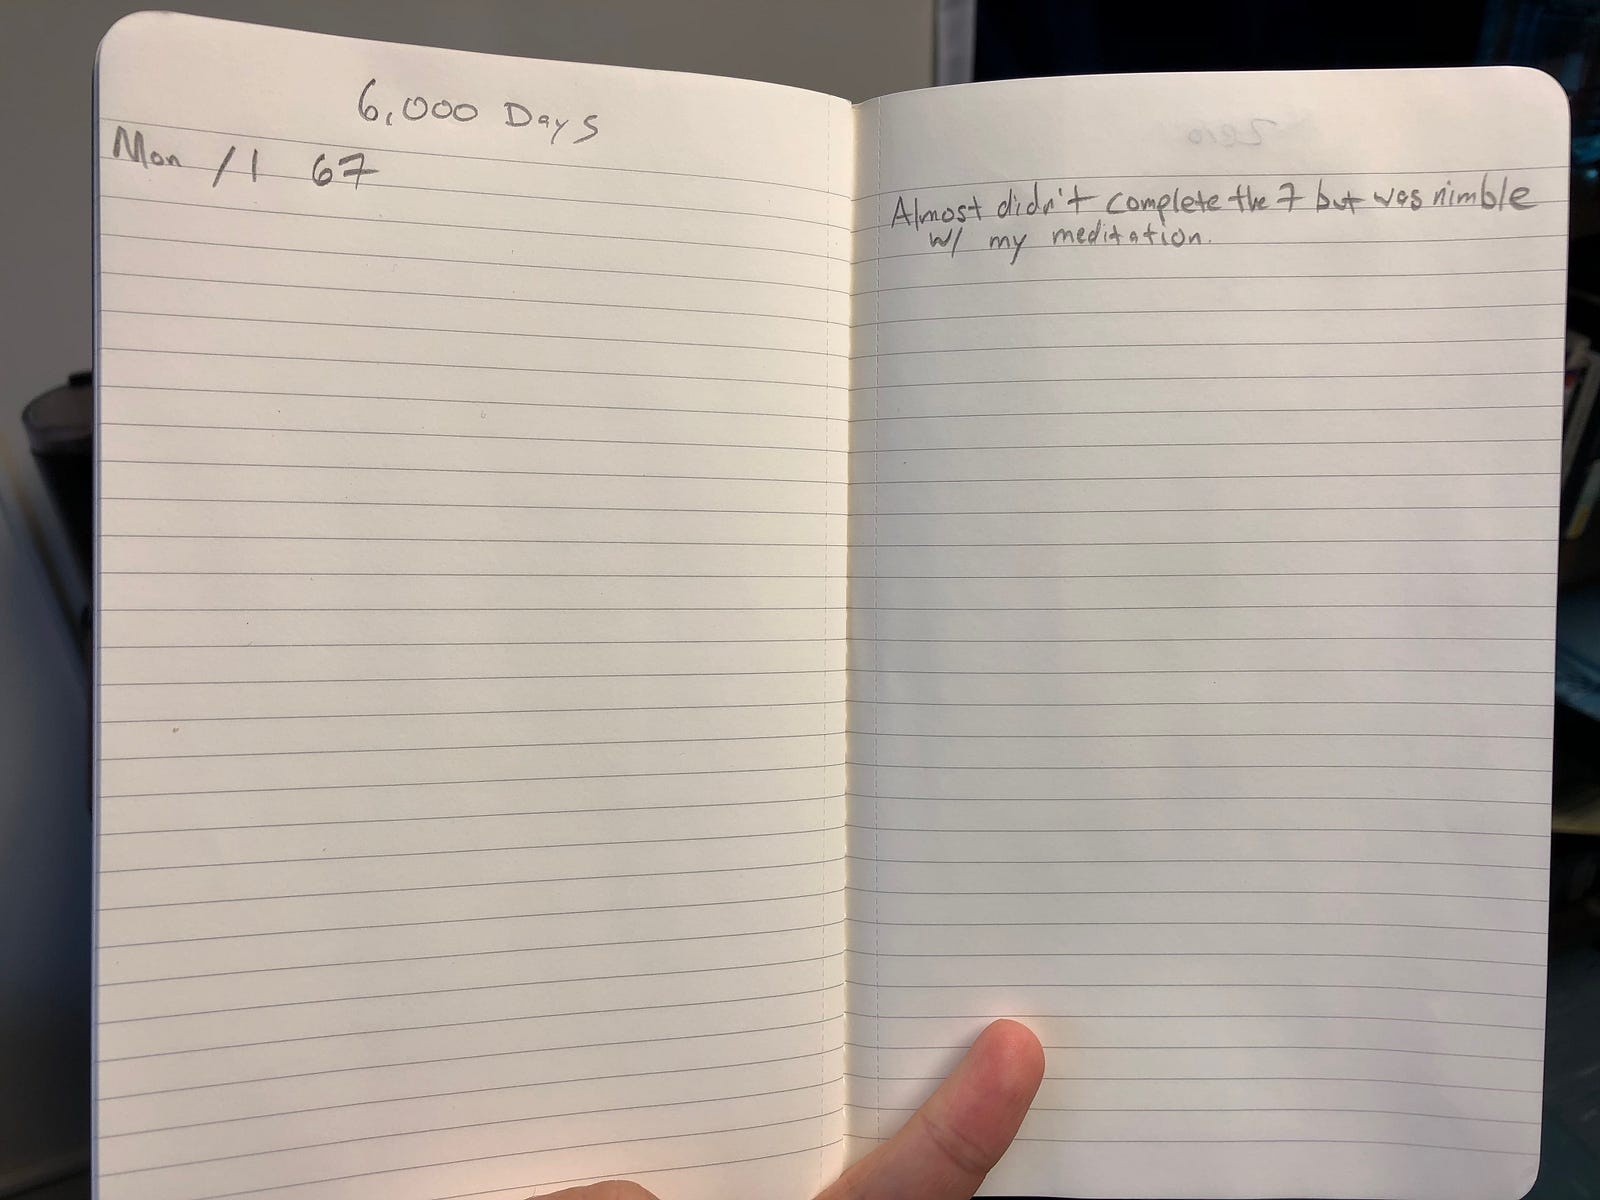 6,000 Days
Mon /1 67
Zero
Almost didn't complete the 7 but was nimble
w/ my meditation.